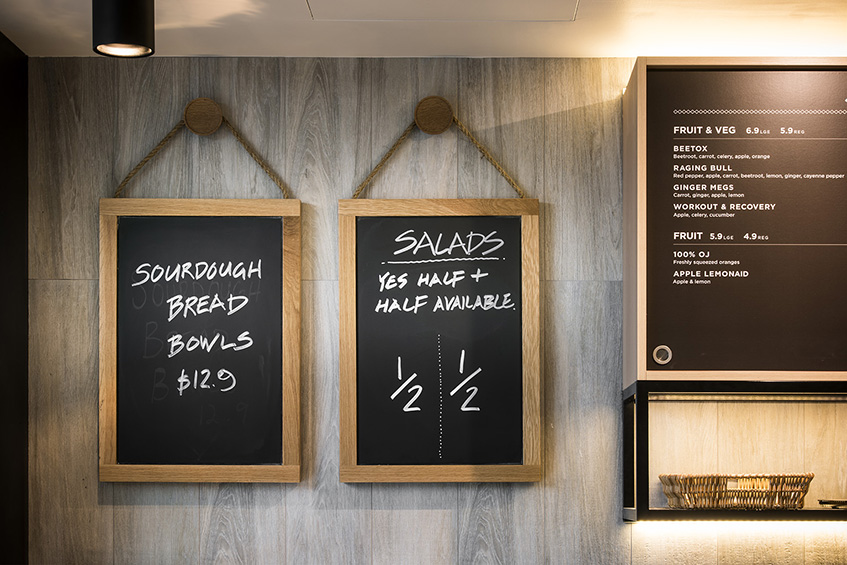 SOURDOUGH
BREAD
BOWLS
$12.9
SALADS
YES HALF +
HALF AVAILABLE.
1/2 1/2
FRUIT & VEG 6.9 LGE 5.9 REG
BEETOX
Beetroot, carrot, celery, apple, orange
RAGING BULL
Red pepper, apple, carrot, beetroot, lemon, ginger, cayenne pepper
GINGER MEGS
Carrot, ginger, apple, lemon
WORKOUT & RECOVERY
Apple, celery, cucumber
FRUIT 5.9 LGE 4.9 REG
100% OJ
Freshly squeezed oranges
APPLE LEMONAID
Apple & lemon